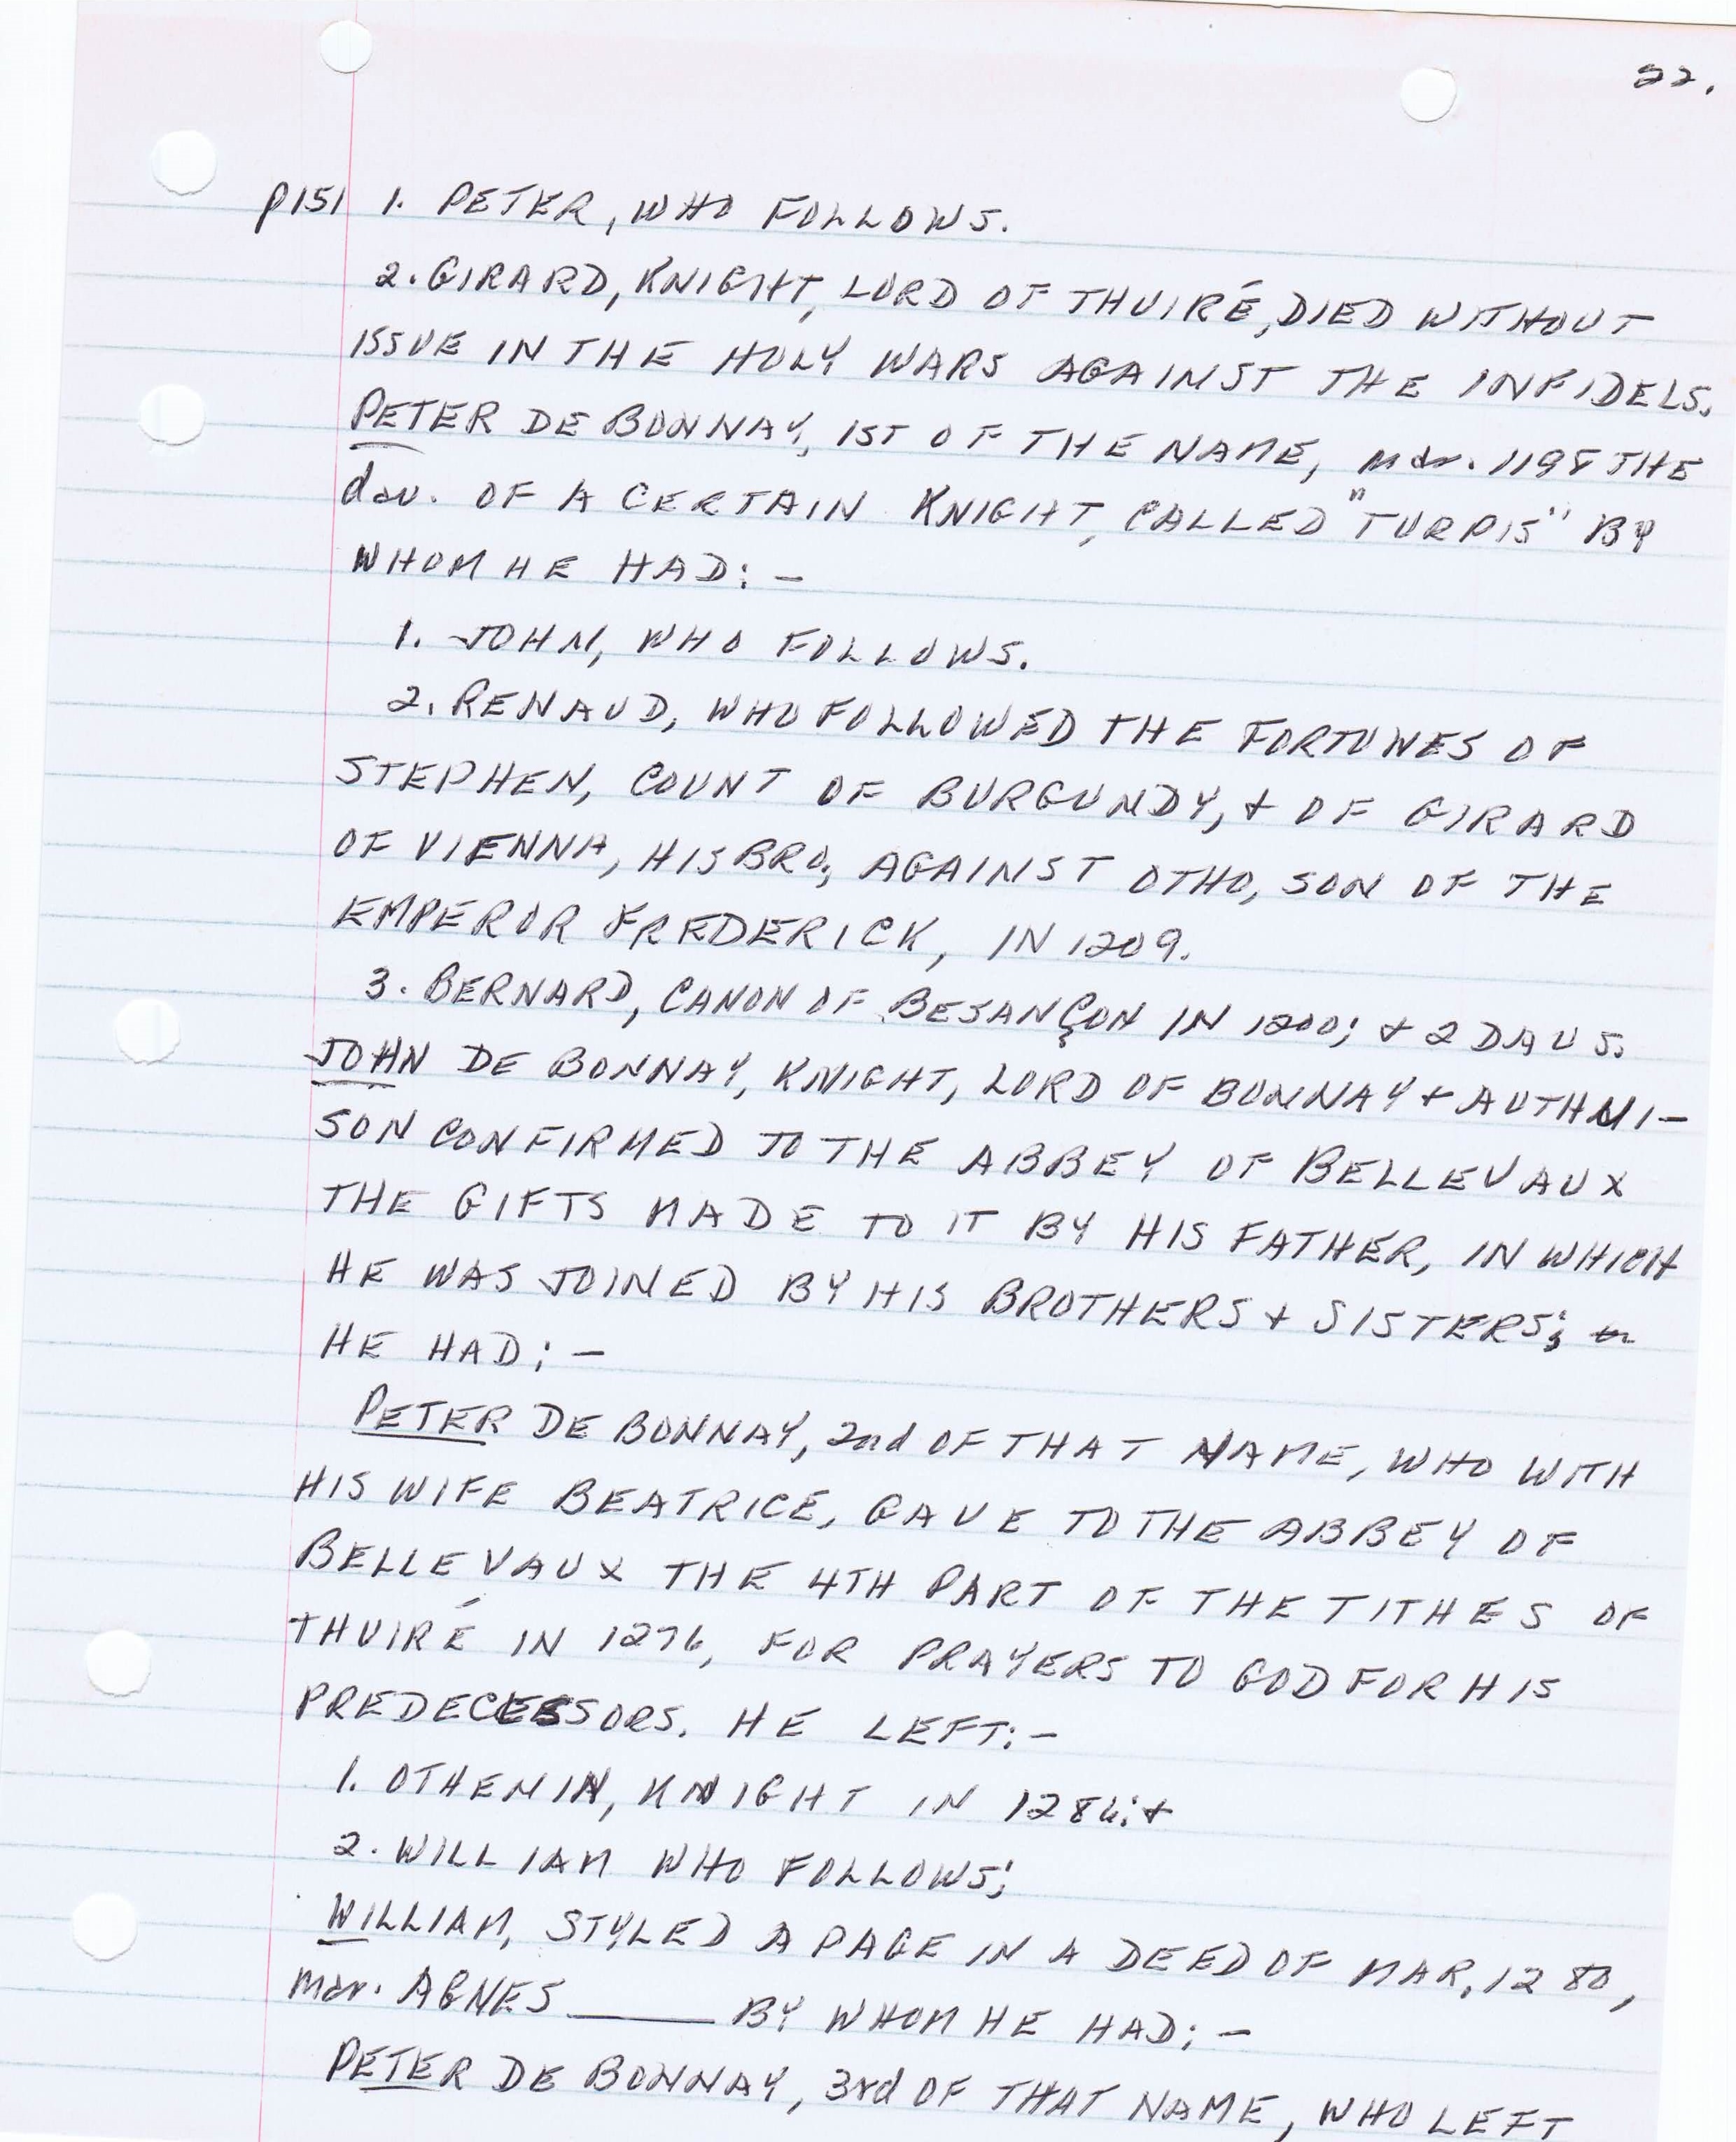 22.
p151 1. PETER, WHO FOLLOWS.
2. GIRARD, KNIGHT, LORD OF THUIRÉ, DIED WITHOUT
ISSUE IN THE HOLY WARS AGAINST THE INFIDELS.
PETER DE BONNAY, 1ST OF THE NAME, mar. 1198 THE
dau. OF A CERTAIN KNIGHT, CALLED "TURPIS" BY
WHOM HE HAD:-
1. JOHN, WHO FOLLOWS.
2. RENAUD, WHO FOLLOWED THE FORTUNES OF
STEPHEN, COUNT OF BURGUNDY, & OF GIRARD
OF VIENNA, HIS BRO, AGAINST OTHO, SON OF THE
EMPEROR FREDERICK, IN 1209.
3. BERNARD, CANON OF BESANÇON IN 1200; & 2 DAUS.
JOHN DE BONNAY, KNIGHT, LORD OF BONNAY & AUTHNI-
SON CONFIRMED TO THE ABBEY OF BELLEVAUX
THE GIFTS MADE TO IT BY HIS FATHER, IN WHICH
HE WAS JOINED BY HIS BROTHERS & SISTERS;
HE HAD:-
PETER DE BONNAY, 2nd OF THAT NAME, WHO WITH
HIS WIFE BEATRICE, GAVE TO THE ABBEY OF
BELLEVAUX THE 4TH PART OF THE TITHES OF
THUIRÉ IN 1276, FOR PRAYERS TO GOD FOR HIS
PREDECESSORS. HE LEFT:-
1. OTHENIN, KNIGHT IN &
2. WILLIAM WHO FOLLOWS;
WILLIAM, STYLED A PAGE IN A DEED OF MAR, 1280,
mar. AGNES _____ BY WHOM HE HAD:-
PETER DE BONNAY, 3rd OF THAT NAME, WHO LEFT